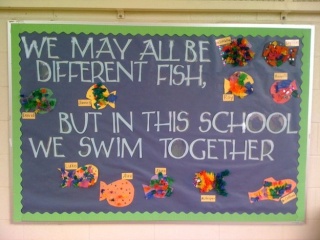 WE MAY ALL BE
DIFFERENT FISH,
BUT IN THIS SCHOOL
WE SWIM TOGETHER